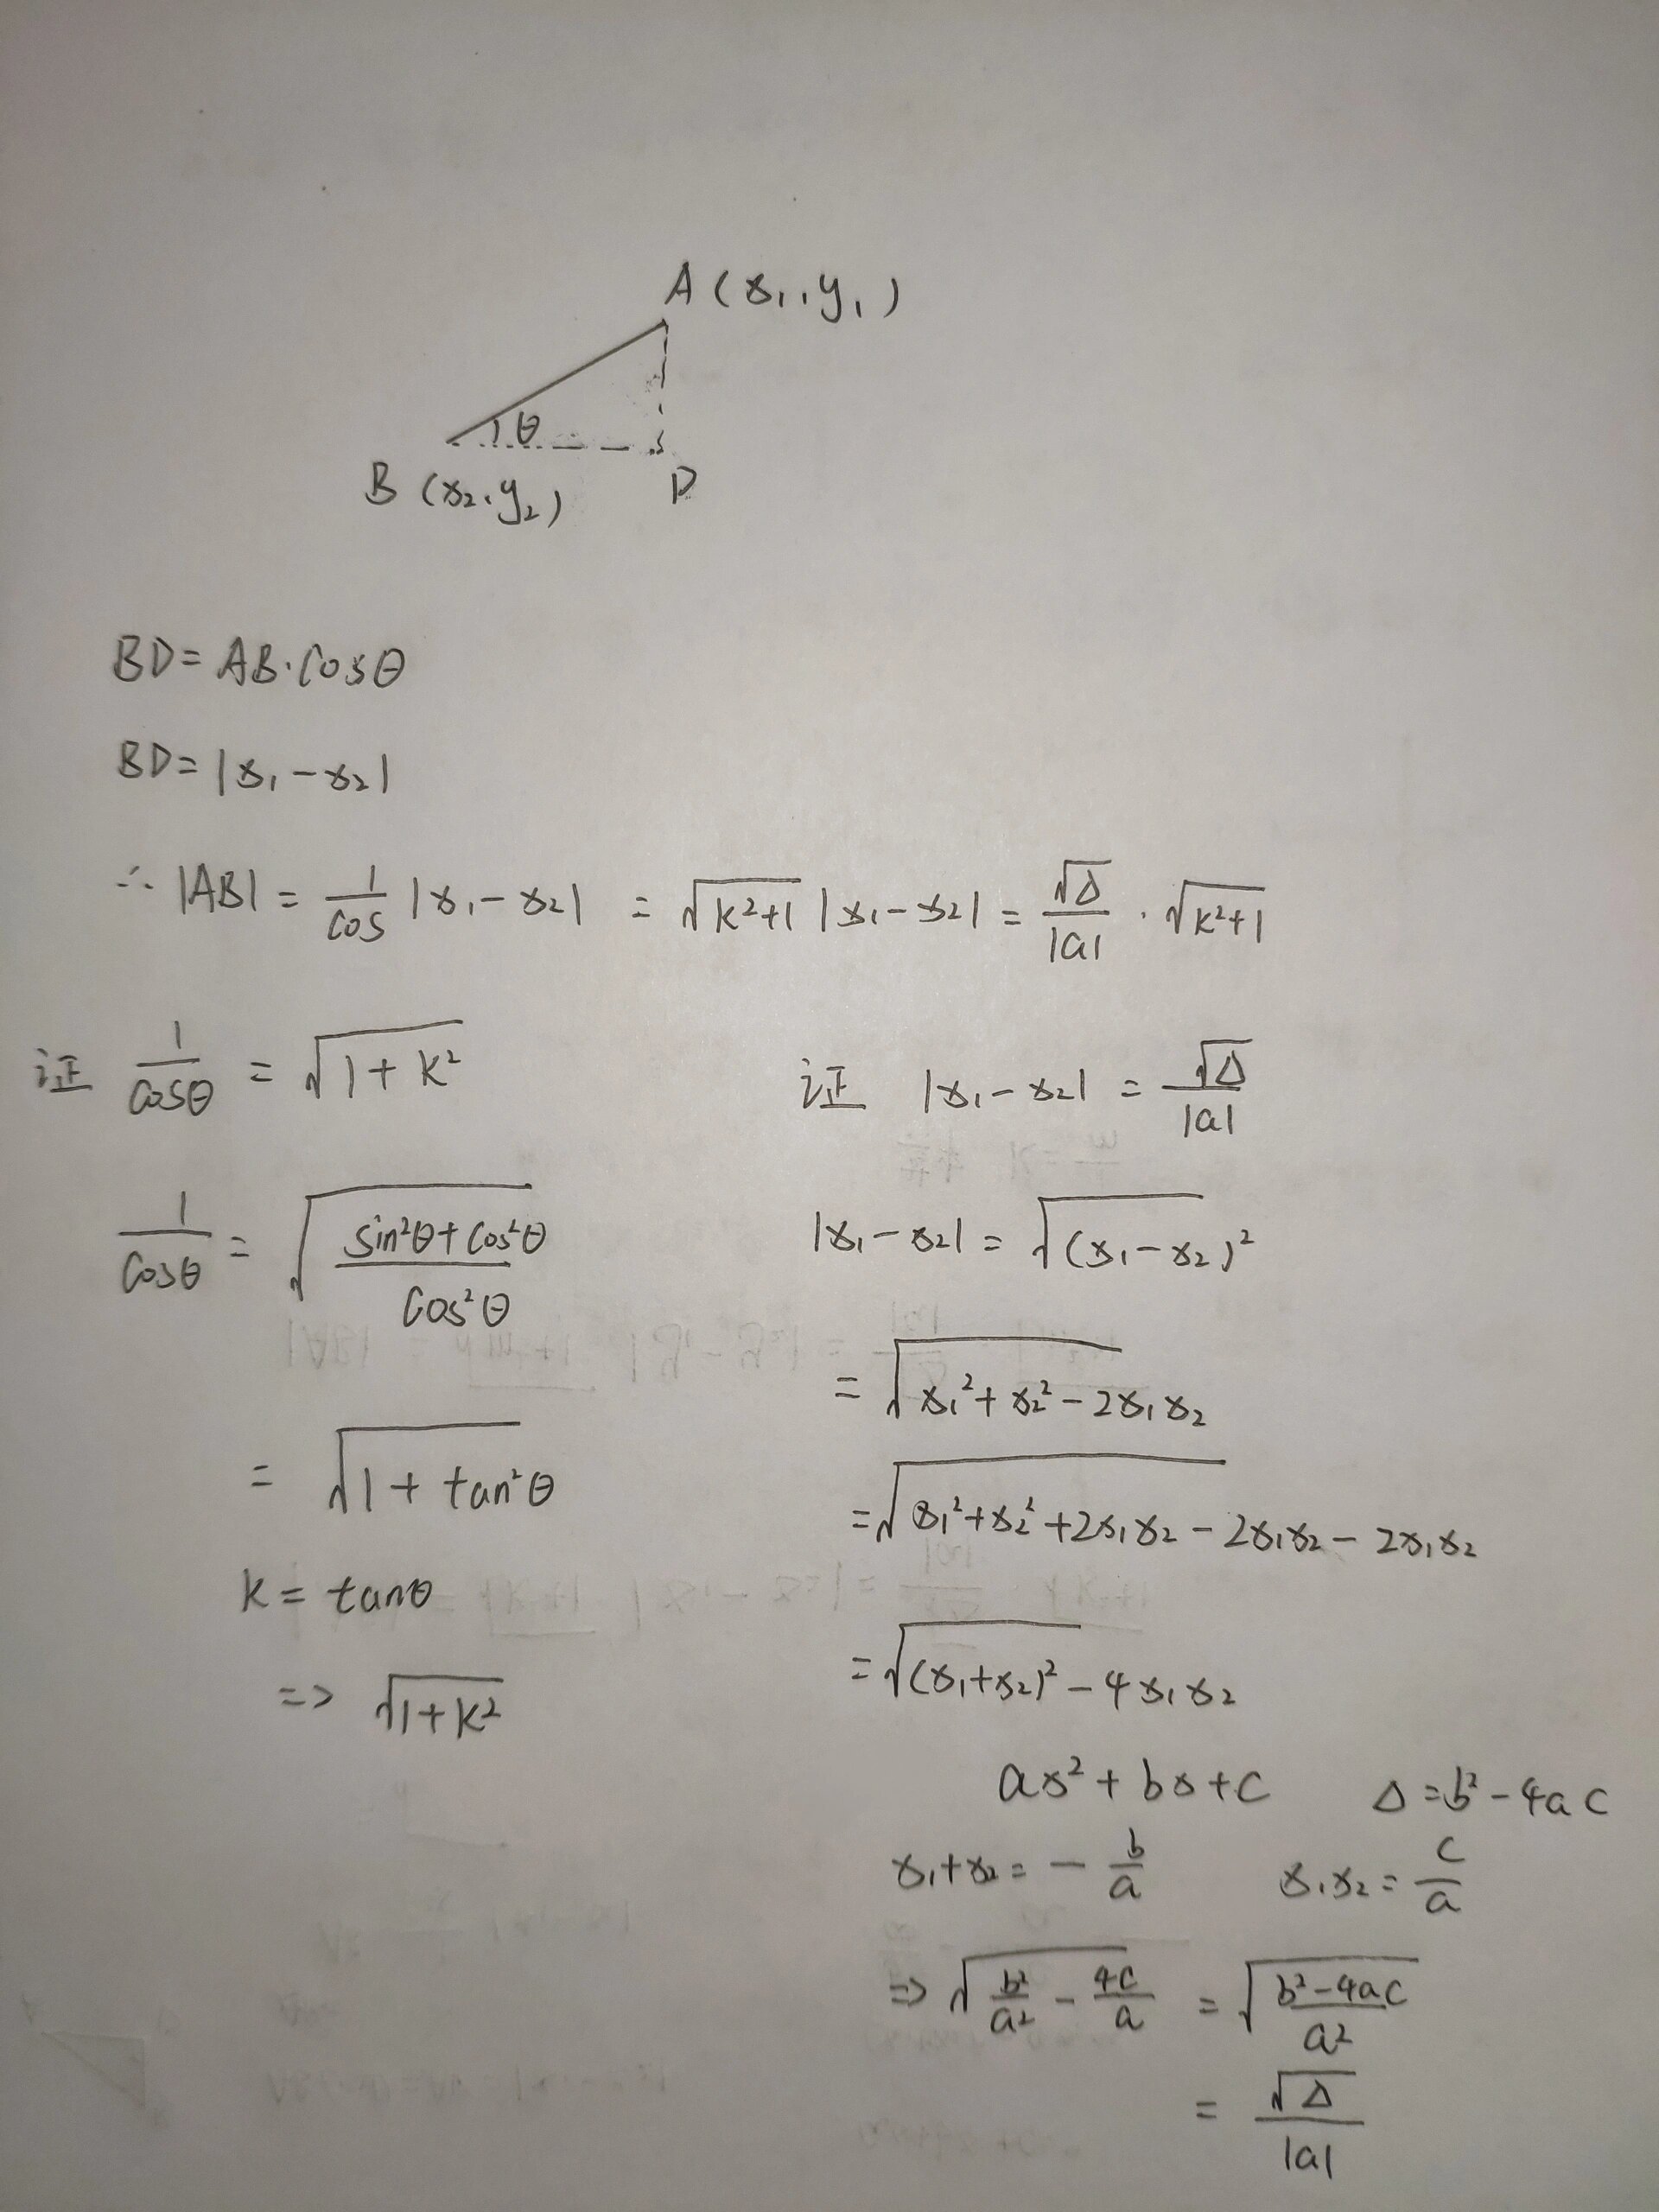 A(x₁,y₁)
θ
B(x₂,y₂)
D
BD=AB·cosθ
BD=|x₁-x₂|
∴|AB|=1/cos|x₁-x₂|=√(k²+1)|x₁-x₂|=√Δ/|a|·√(k²+1)
证 1/cosθ=√(1+k²)
1/cosθ=√((sin²θ+cos²θ)/cos²θ)
=√(1+tan²θ)
k=tanθ
=>√(1+k²)
证 |x₁-x₂|=√Δ/|a|
|x₁-x₂|=√(x₁-x₂)²
=√(x₁²+x₂²-2x₁x₂)
=√(x₁²+x₂²+2x₁x₂-2x₁x₂-2x₁x₂)
=√((x₁+x₂)²-4x₁x₂)
ax²+bx+c Δ=b²-4ac
x₁+x₂=-b/a x₁x₂=c/a
=>√(b²/a²-4c/a)=√((b²-4ac)/a²)
=√Δ/|a|